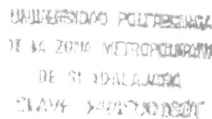 UNIVERSIDAD POLITECNICA
DE LA ZONA METROPOLITANA
DE GUADALAJARA
CLAVE